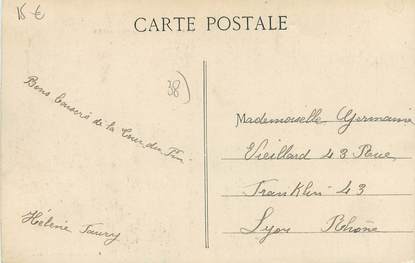 15 €
CARTE POSTALE
38)
Bons baisers de la Tour du Pin
Hélène Faury
Mademoiselle Germaine
Vieillard 43 Rue
Franklin 43
Lyon Rhône